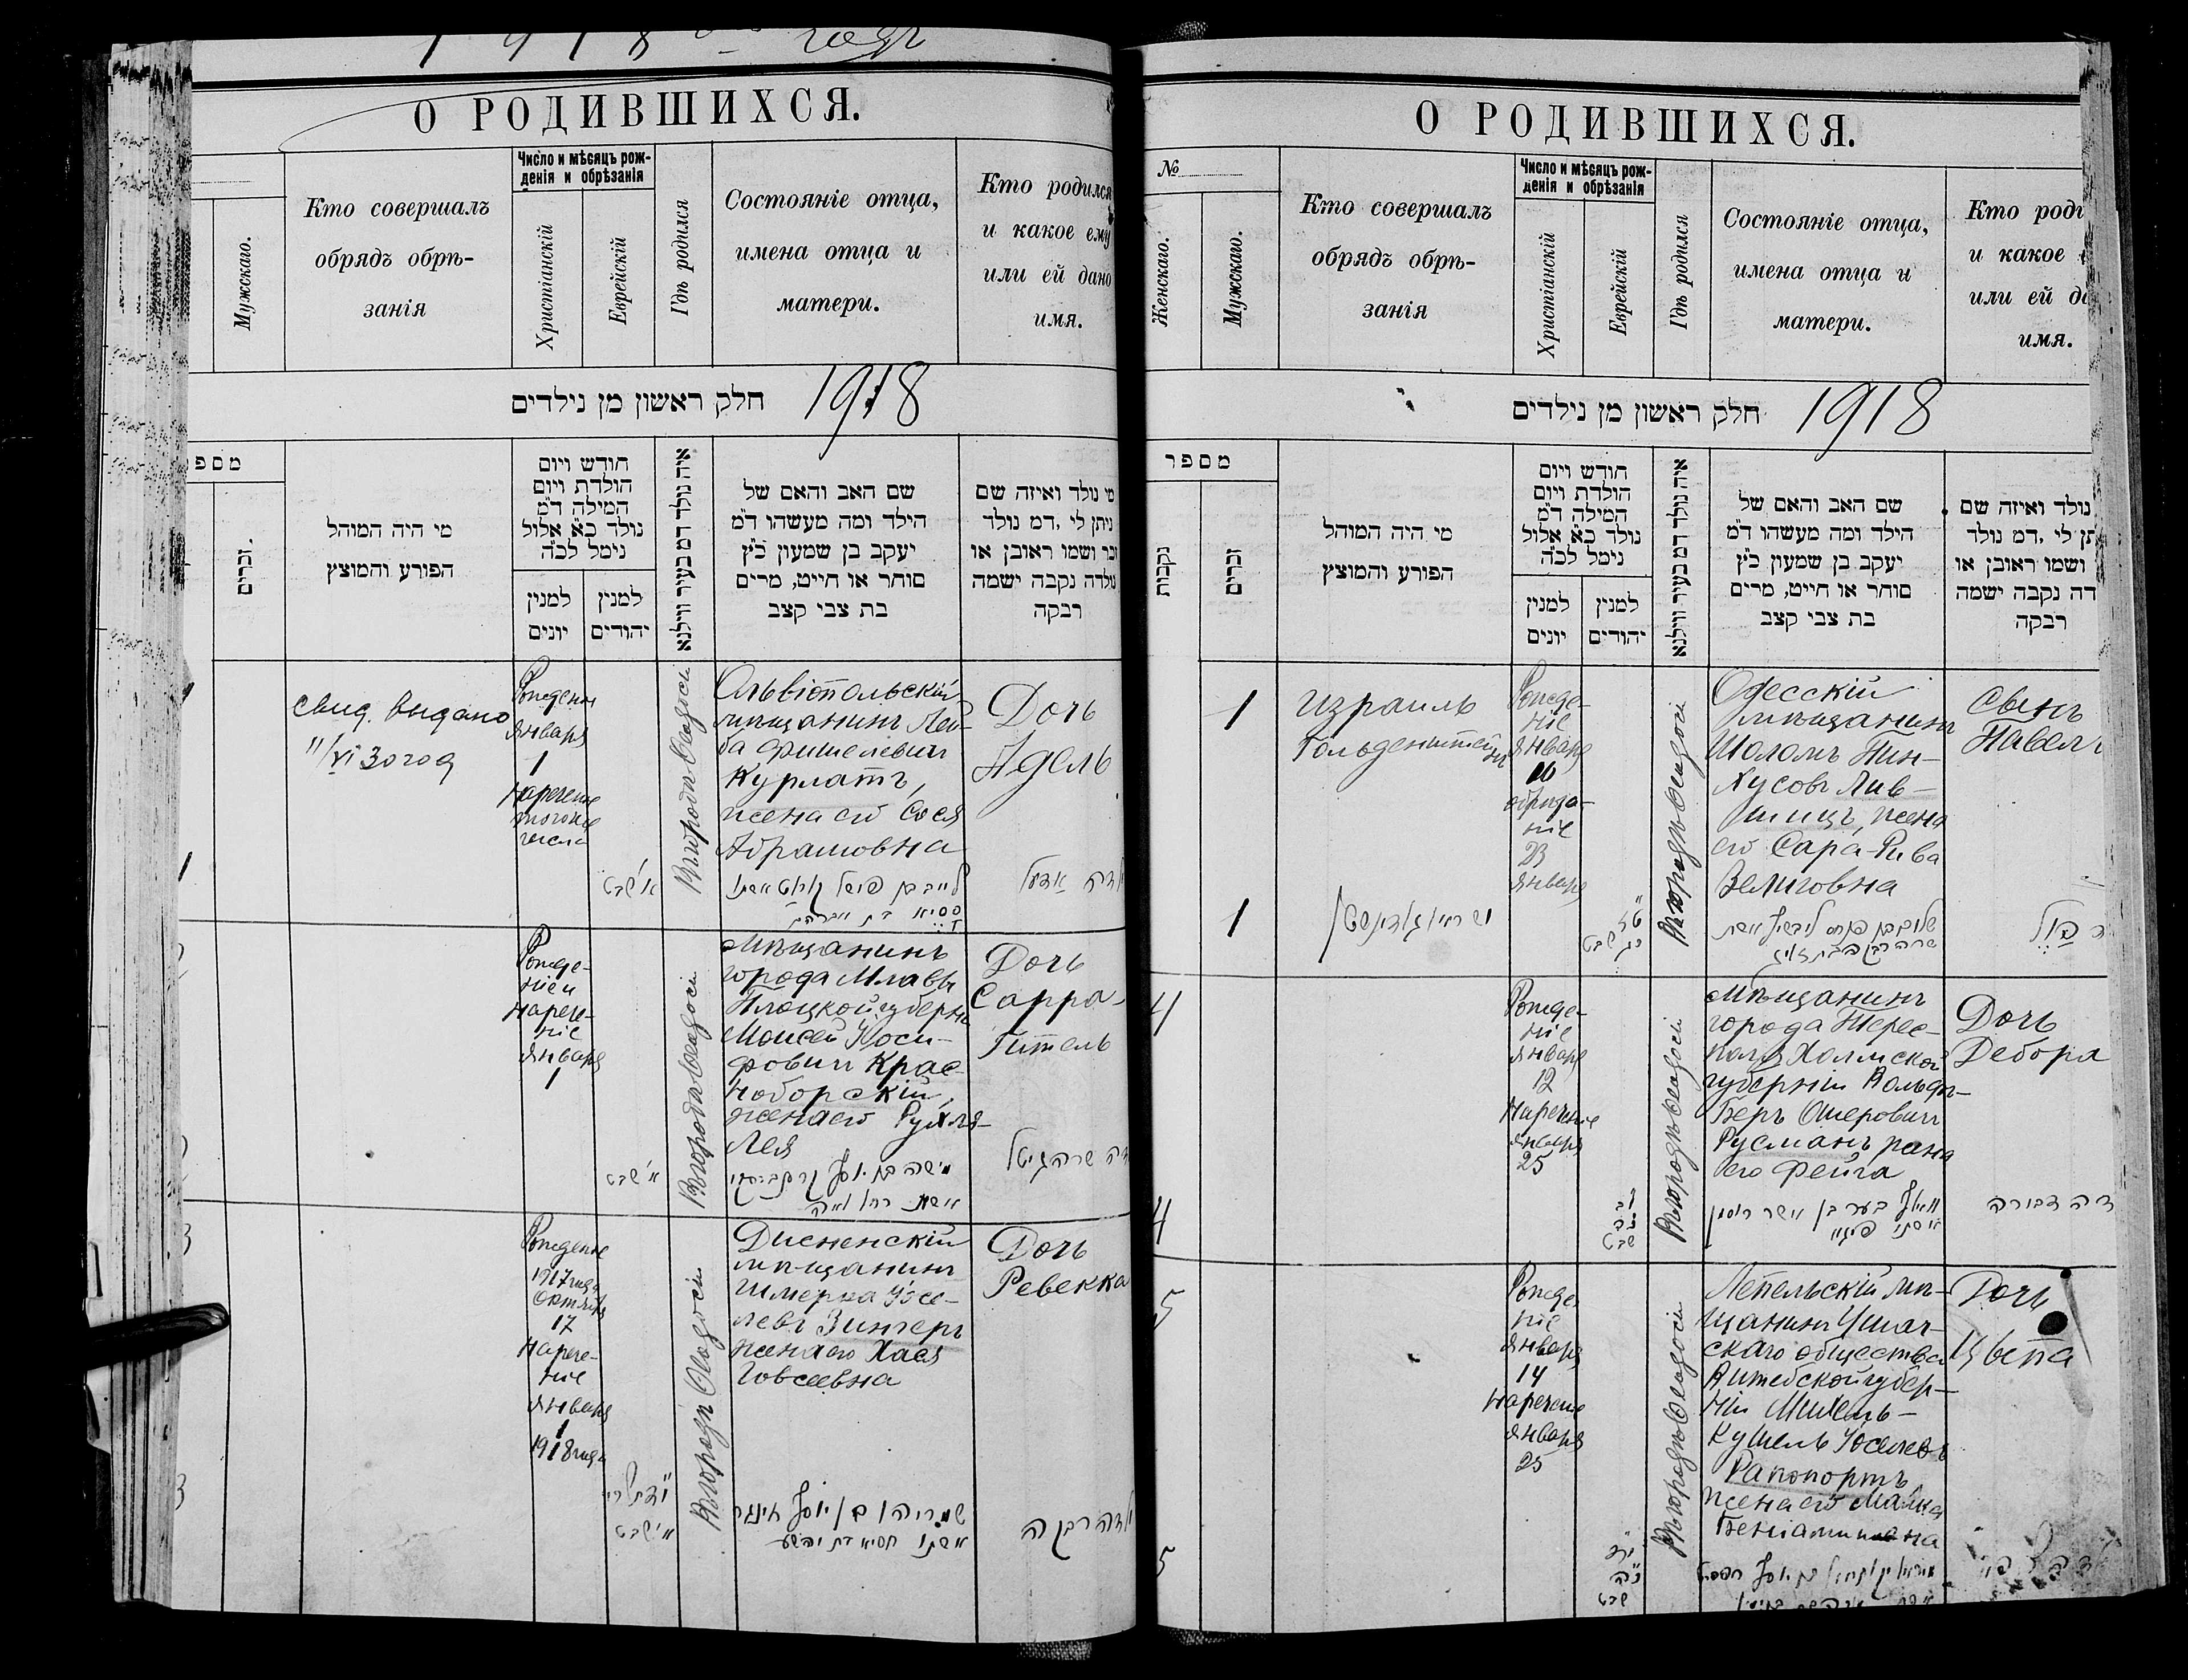 1918 года
О РОДИВШИХСЯ.
Мужскаго.
Кто совершалъ
обрядъ обрѣ-
занія
Число и мѣсяцъ рож-
денія и обрѣзанія
Христіанскій
Еврейскій
Гдѣ родился
Состояніе отца,
имена отца и
матери.
Кто родился
и какое ему
или ей дано
имя.
חלק ראשון מן נילדים 1918
מספ
זכרים.
מי היה המוהל
הפורע והמוצץ
חודש ויום
הולדת ויום
המילה ד״מ
נולד כ״א אלול
נימל לכ״ה
למנין
יונים
למנין
יהודים
איה נולד דמ בעיר ווילנא
שם האב והאם של
הילד ומה מעשהו ד״מ
יעקב בן שמעון כ״ץ
סוחר או חייט, מרים
בת צבי קצב
מי נולד ואיזה שם
ניתן לי ,דמ נולד
זכר ושמו ראובן או
נולדה נקבה ישמה
רבקה
1
свид. выдано
11/VI 30 год
Рожденіе
Января
1
Нареченіе
того же
числа
א' שבט
Въ городѣ Одессѣ
Ольвіопольскій
мѣщанинъ Лей-
ба Фишелевич
Курлатъ,
жена его Сося
Абрамовна
Дочь
Адель
Рожде-
ніе и
нарече-
ніе
Января
1
א' שבט
Въ городѣ Одессѣ
Мѣщанинъ
города Млавы
Плоцкой губерн
Моисей Іоси-
фовичъ Крас-
ноборскій,
жена его Рухля-
Лея
Дочь
Сарра-
Гитель
3
Рожденіе
1917 года
Октября
17
Нарече-
ніе
Января
1
1918 года
א' שבט
Въ городѣ Одессѣ
Дисненскій
мѣщанинъ
Шмерка Іосе-
левъ Зингеръ
жена его Хася
Іовсеевна
שמריהו בן יוסף זינגר
אשתו חסיא בת יהושע
Дочь
Ревекка
ילדה רבקה
3
О РОДИВШИХСЯ.
№
Женскаго.
Мужскаго.
Кто совершалъ
обрядъ обрѣ-
занія
Число и мѣсяцъ рож-
денія и обрѣзанія
Христіанскій
Еврейскій
Гдѣ родился
Состояніе отца,
имена отца и
матери.
Кто роди
и какое
или ей да
имя.
חלק ראשון מן נילדים 1918
מספר
נקבות
זכרים
מי היה המוהל
הפורע והמוצץ
חודש ויום
הולדת ויום
המילה ד״מ
נולד כ״א אלול
נימל לכ״ה
למנין
יונים
למנין
יהודים
איה נולד דמ בעיר ווילנא
שם האב והאם של
הילד ומה מעשהו ד״מ
יעקב בן שמעון כ״ץ
סוחר או חייט, מרים
בת צבי קצב
נולד ואיזה שם
תן לי ,דמ נולד
ושמו ראובן או
דה נקבה ישמה
רבקה
1
Израиль
Гольденштейнъ
Рожде-
ніе
Января
16
обрѣза-
ніе
23
Января
Въ городѣ Одессѣ
Одесскій
мѣщанинъ
Шоломъ Пин-
хусовъ Лив-
шицъ, жена
его Сара-Рива
Зелиговна
Сынъ
Павелъ
1
4
Рожде-
ніе
Января
12
Нареченіе
Января
25
Въ городѣ Одессѣ
Мѣщанинъ
города Терес-
поля Холмской
губерніи Вольфъ-
Беръ Ошеровичъ
Русманъ жена
его Фейга
Дочь
Дебора
דה דבורה
4
5
Рожде
ніе
Января
14
Нареченіе
Января
25
Въ городѣ Одессѣ
Лепельскій мѣ-
щанинъ Ушач-
скаго общества
Витебской губер-
ніи Михель-
Кушель Іоселевъ
Рапопортъ,
жена его Малка
Беніаминовна
Дочь
Цыпа
5